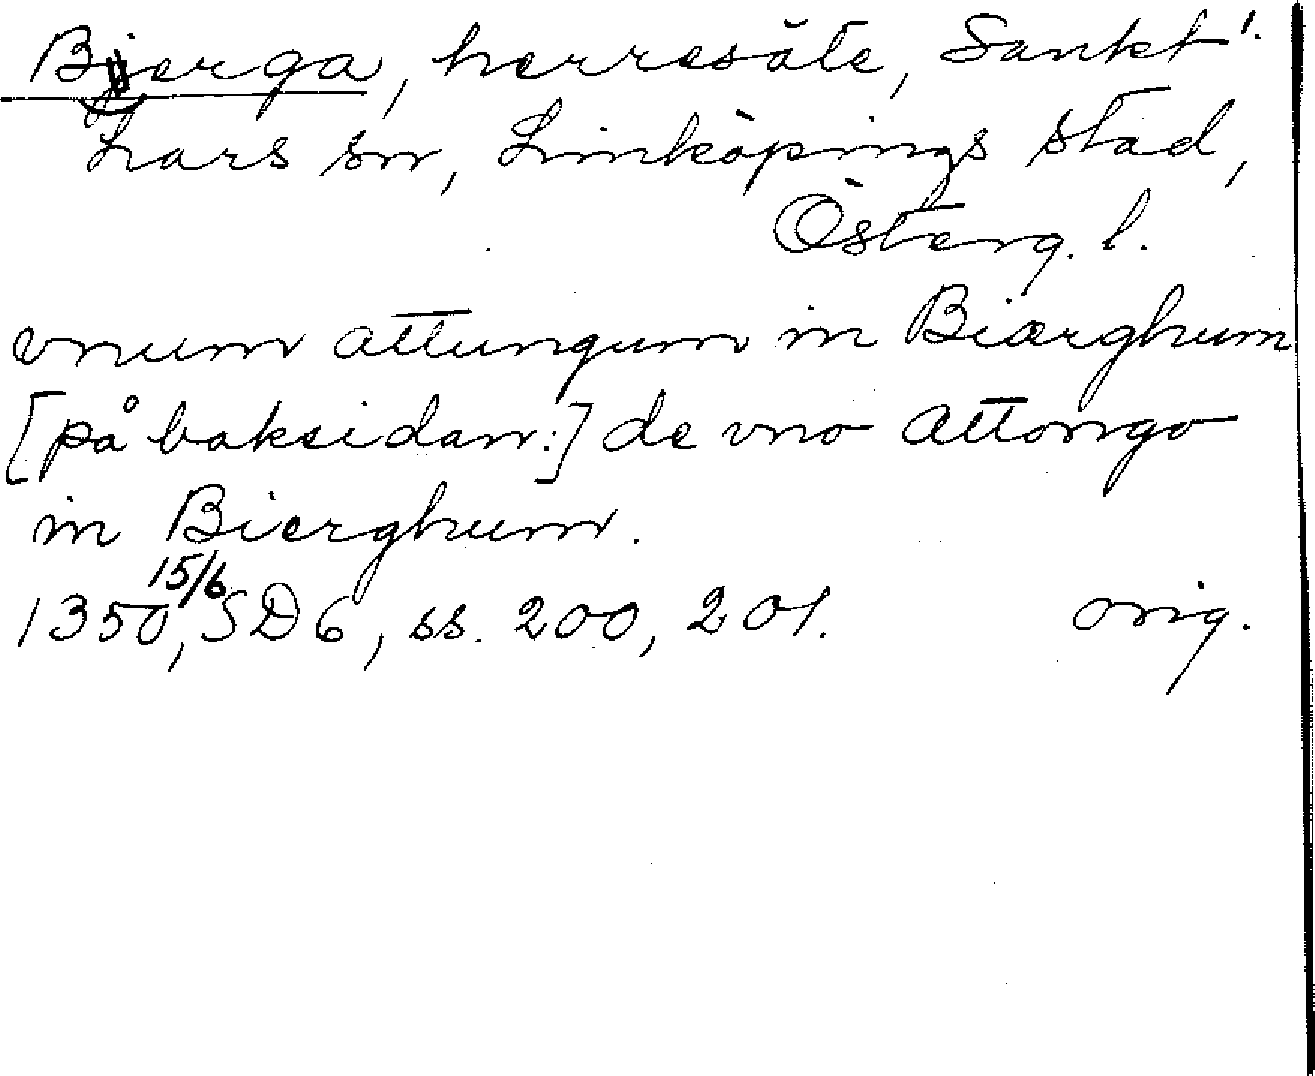 Bjerga, herresäte, Sankt 1.
Lars sn, Linköpings stad,
Österg. l.
vnum attungum in Biærghum
[på baksidan:] de vno attongo
in Bierghum.
1350 15/6, SD 6, ss. 200, 201. orig.